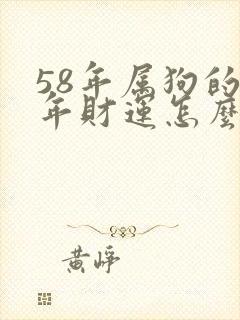 58年属狗的
年财运怎麽
黄峥